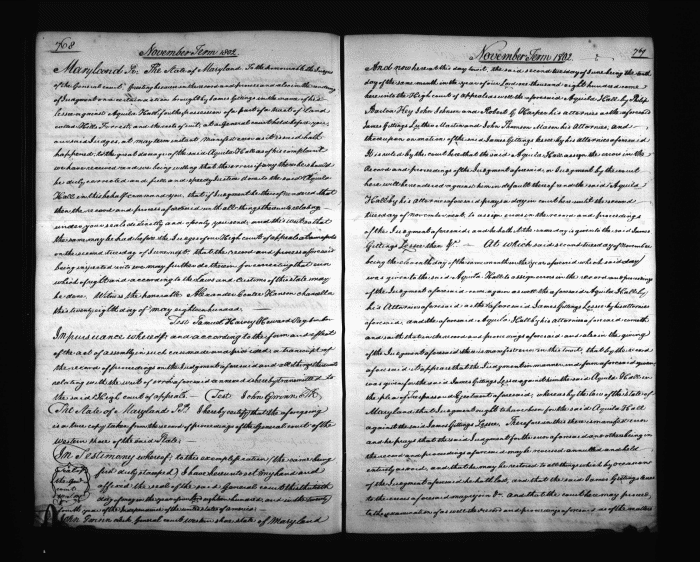 768
November Term 1802
Maryland Sc. The State of Maryland To the honourable the Judges
of the General court. Greeting because in the record and process and also in the rendering
of Judgment and in brought by James Gittings in the name of his
Lessee against Aquila Hall for the possession of a part of a tract of Land
called Halls Forrest, and the cats of suit at a General court held before you,
our said Judges, at may term last manifest error as it is said hath
happened, to the great damage of the said Aquila Hall as of his complaint
we have received and we being willing that the error if any there be should
be duly corrected and full and speedy Justice done to the said Aquila
Hall in this behalf command you, that if Judgment be thereof rendered that
then the record and process aforesaid with all things thereunto relating
under your seals distinctly and openly you send, and this writ so that
the same may be had before the Judges of our High court of appeals at annapolis
on the second tuesday of June next. that the record and process aforesaid
being inspected we may further do thereon for correcting that error
which of right and according to the Laws and Customs of this state may
be done. Witness the honorable Alexander Contee Hanson chancellor
this twenty eighth day of may eighteen hundred.
Test Samuel Harvey Howard Reg. Cur. Can.
In pursuance whereof, and according to the form and effect
of the act of assembly in such case made and provided, a transcript of
the record of proceedings on the Judgment aforesaid and all things thereunto
relating with the writ of error aforesaid annexed is hereby transmitted to
the said High court of appeals. Test John Gwinn Clk
The State of Maryland Sc. I hereby certify that the aforegoing
is a true copy taken from the record of proceedings of the General court of the
western shore of the said State.
In Testimony whereof, to this exemplification (the same being
first duly stamped) I have hereunto set my hand and
affixed the seal of the said General court this thirtieth
day of may in the year of our Lord eighteen hundred, and in the twenty
fourth year of the independence of the united states of america.
John Gwinn clerk General court western shore state of Maryland
November Term 1802
And now here at this day to wit, the said second tuesday of June being the tenth
day of the same month in the year of our Lord one thousand eight hundred
here into the High court of appeals cometh the aforesaid Aquila Hall by Philip
Barton Key John Johnson and Robert G Harper his attornies and the aforesaid
James Gittings by Luther Martin and John Thomson Mason his Attornies, and
thereupon on motion of the said James Gittings Lessee by his attornies aforesaid
It is ruled by the court here that the said Aquila Hall assign the errors in the
Record and proceedings of the Judgment aforesaid, or Judgment by the court
here will be rendered against him in default thereof and the said Aquila
Hall by his attornies aforesaid prays a day in court here until the second
tuesday of november next to assign errors in the record and proceedings
of the Judgment aforesaid, and he hath it, the same day is given to the said James
Gittings Lessee then &c. At which said second tuesday of November
being the eleventh day of the same month in the year aforesaid which said day
was given to the said Aquila Hall to assign errors in the record and proceedings
of the Judgment aforesaid, come again as well the aforesaid Aquila Hall by
his Attornies aforesaid as the aforesaid James Gittings Lessee by his attornies
aforesaid, and the aforesaid Aquila Hall by his Attornies aforesaid cometh
and saith that in the record and proceedings aforesaid and also in the giving
of the Judgment aforesaid there is manifest error in this to wit, that by the record
aforesaid it appears that the Judgment in manner and form aforesaid given
was given for the said James Gittings Lessee against him the said Aquila Hall in
the plea of Trespass and Ejectment aforesaid, whereas by the law of the state of
Maryland, that Judgment ought to have been for the said Aquila Hall
against the said James Gittings Lessee. Therefore in this there is manifest error
and he prays that the said Judgment for the errors aforesaid and others being in
the record and proceedings aforesaid may be reversed annulled and held
entirely as void, and that he may be restored to all things which by occasion
of the Judgment aforesaid he hath lost, and that the said James Gittings Lessee
to the errors aforesaid may rejoin &c. And that the court here may proceed
to the examination of as well the record and proceedings aforesaid as of the matters